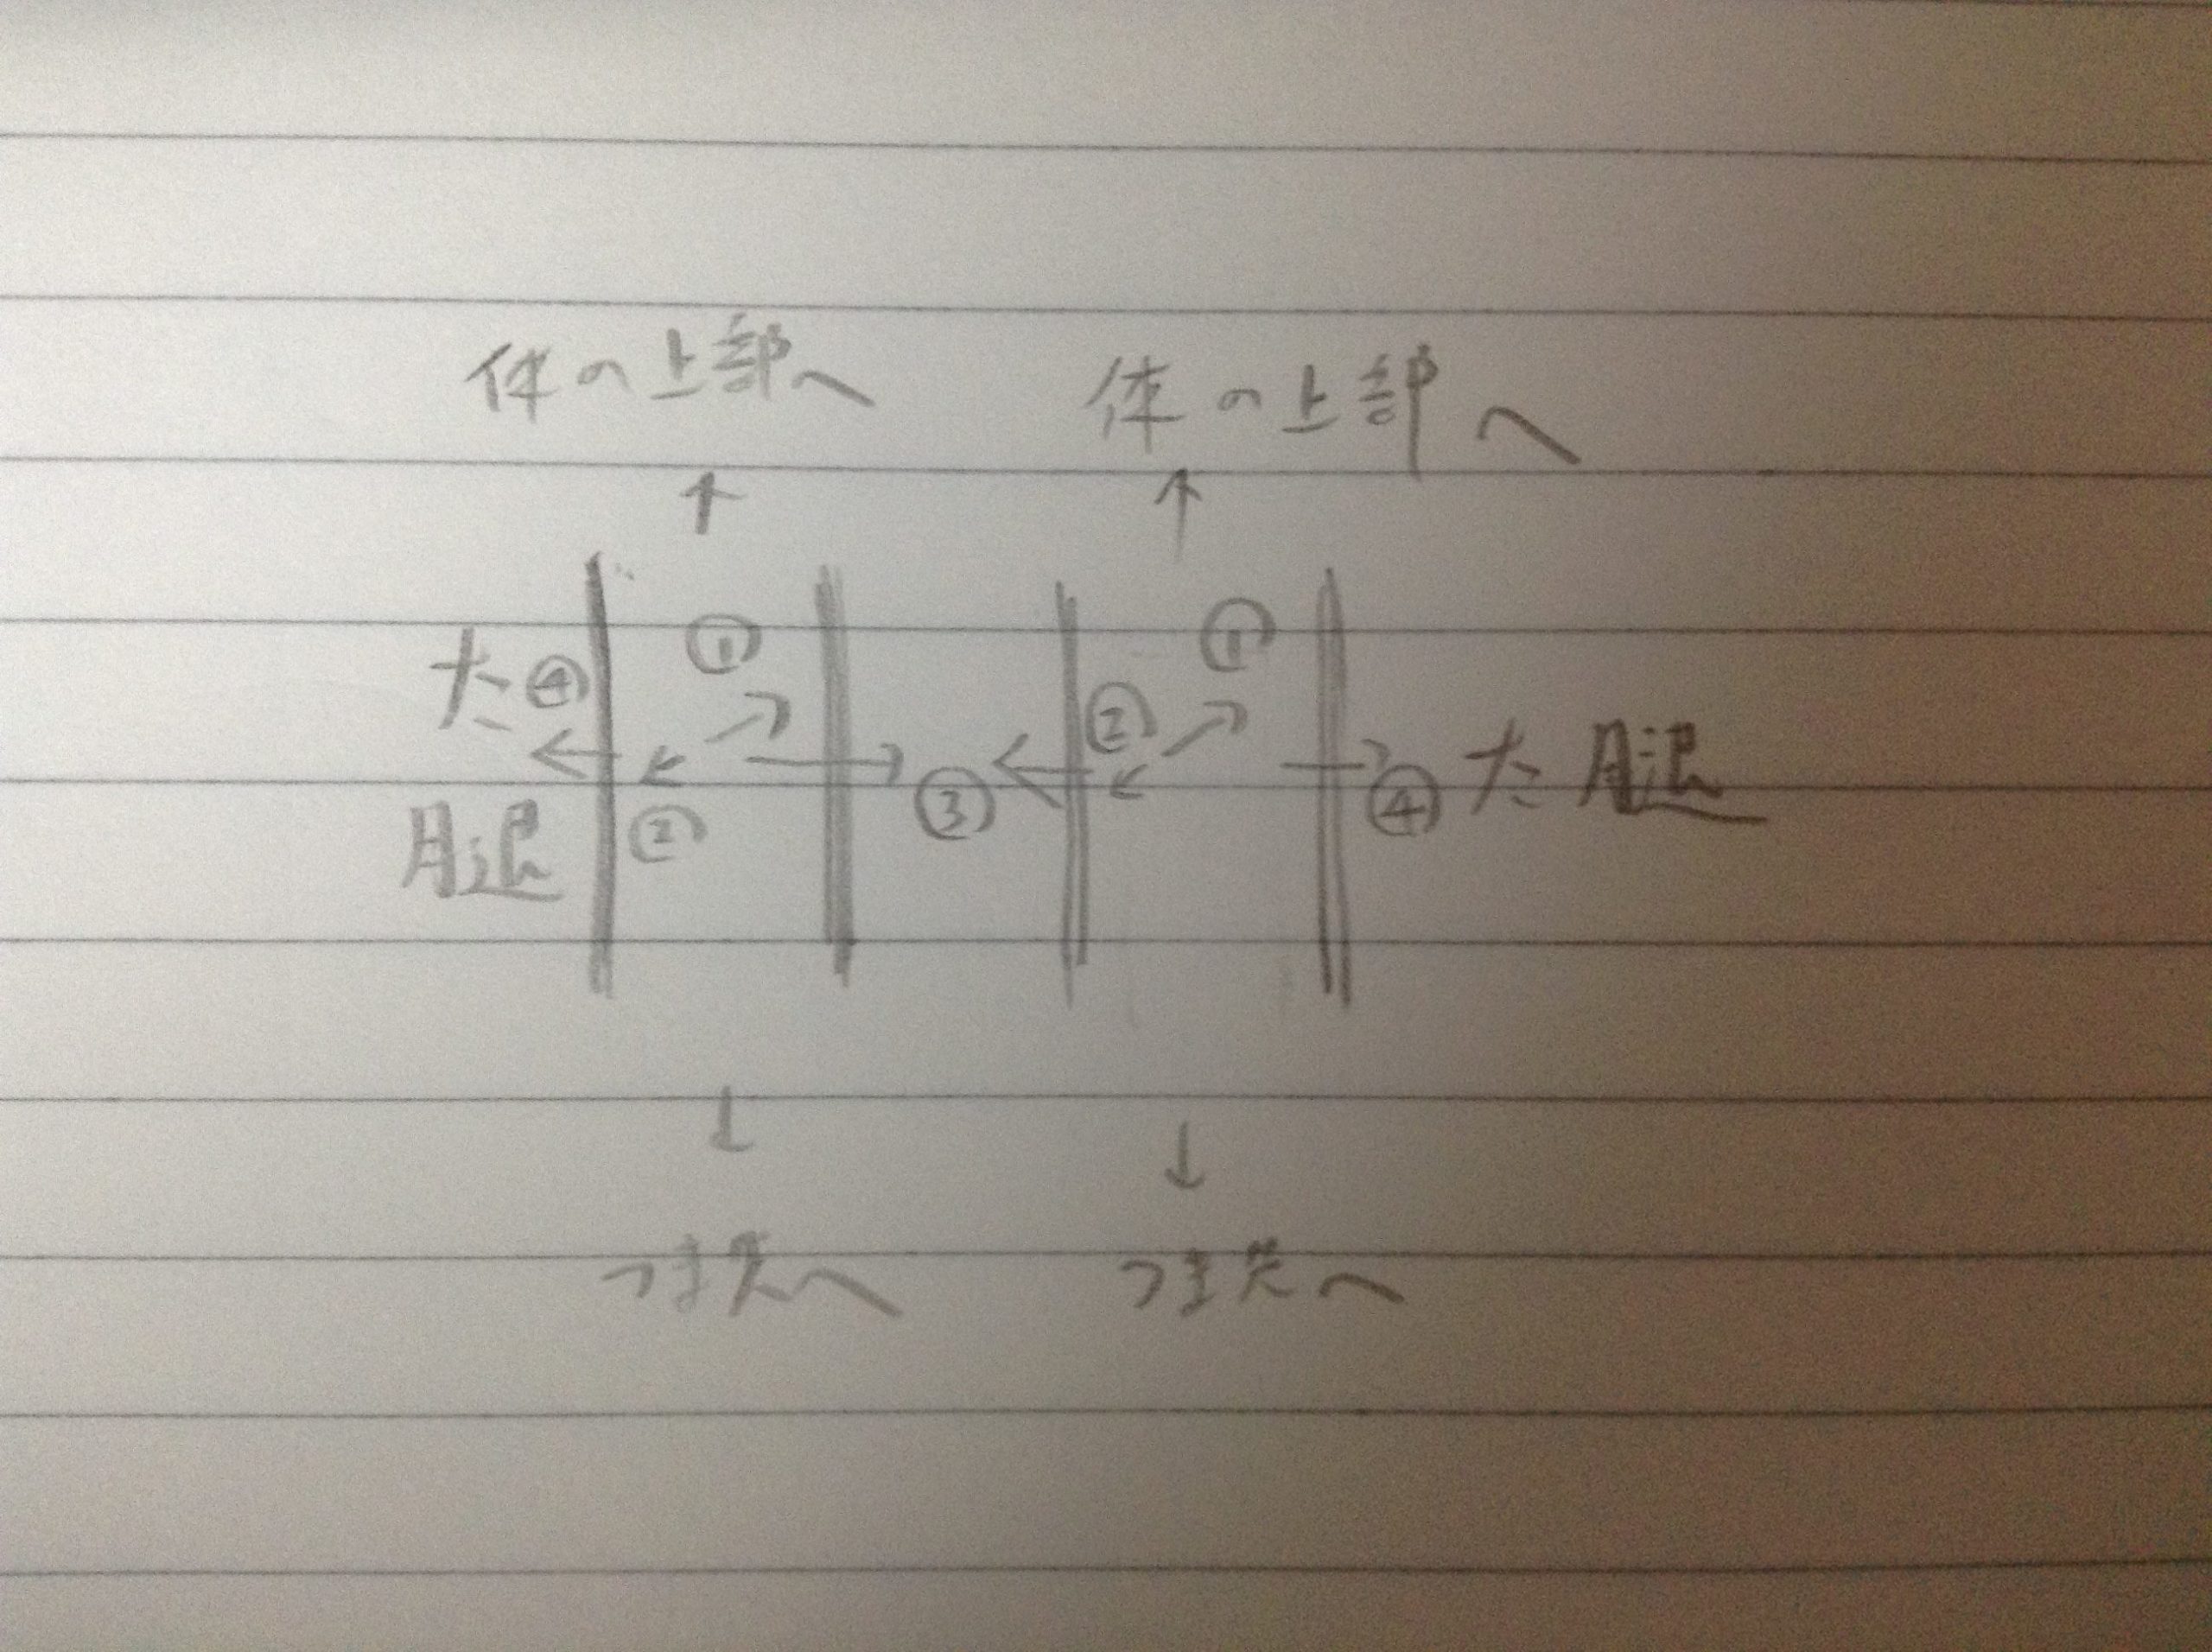 体の上部へ 体の上部へ
↑ ↑
① ①
大④ ②
← ↙ ↗ → ← ↙ ↗ → 大腿
腿 ② ③ ④
↓ ↓
つま先へ つま先へ